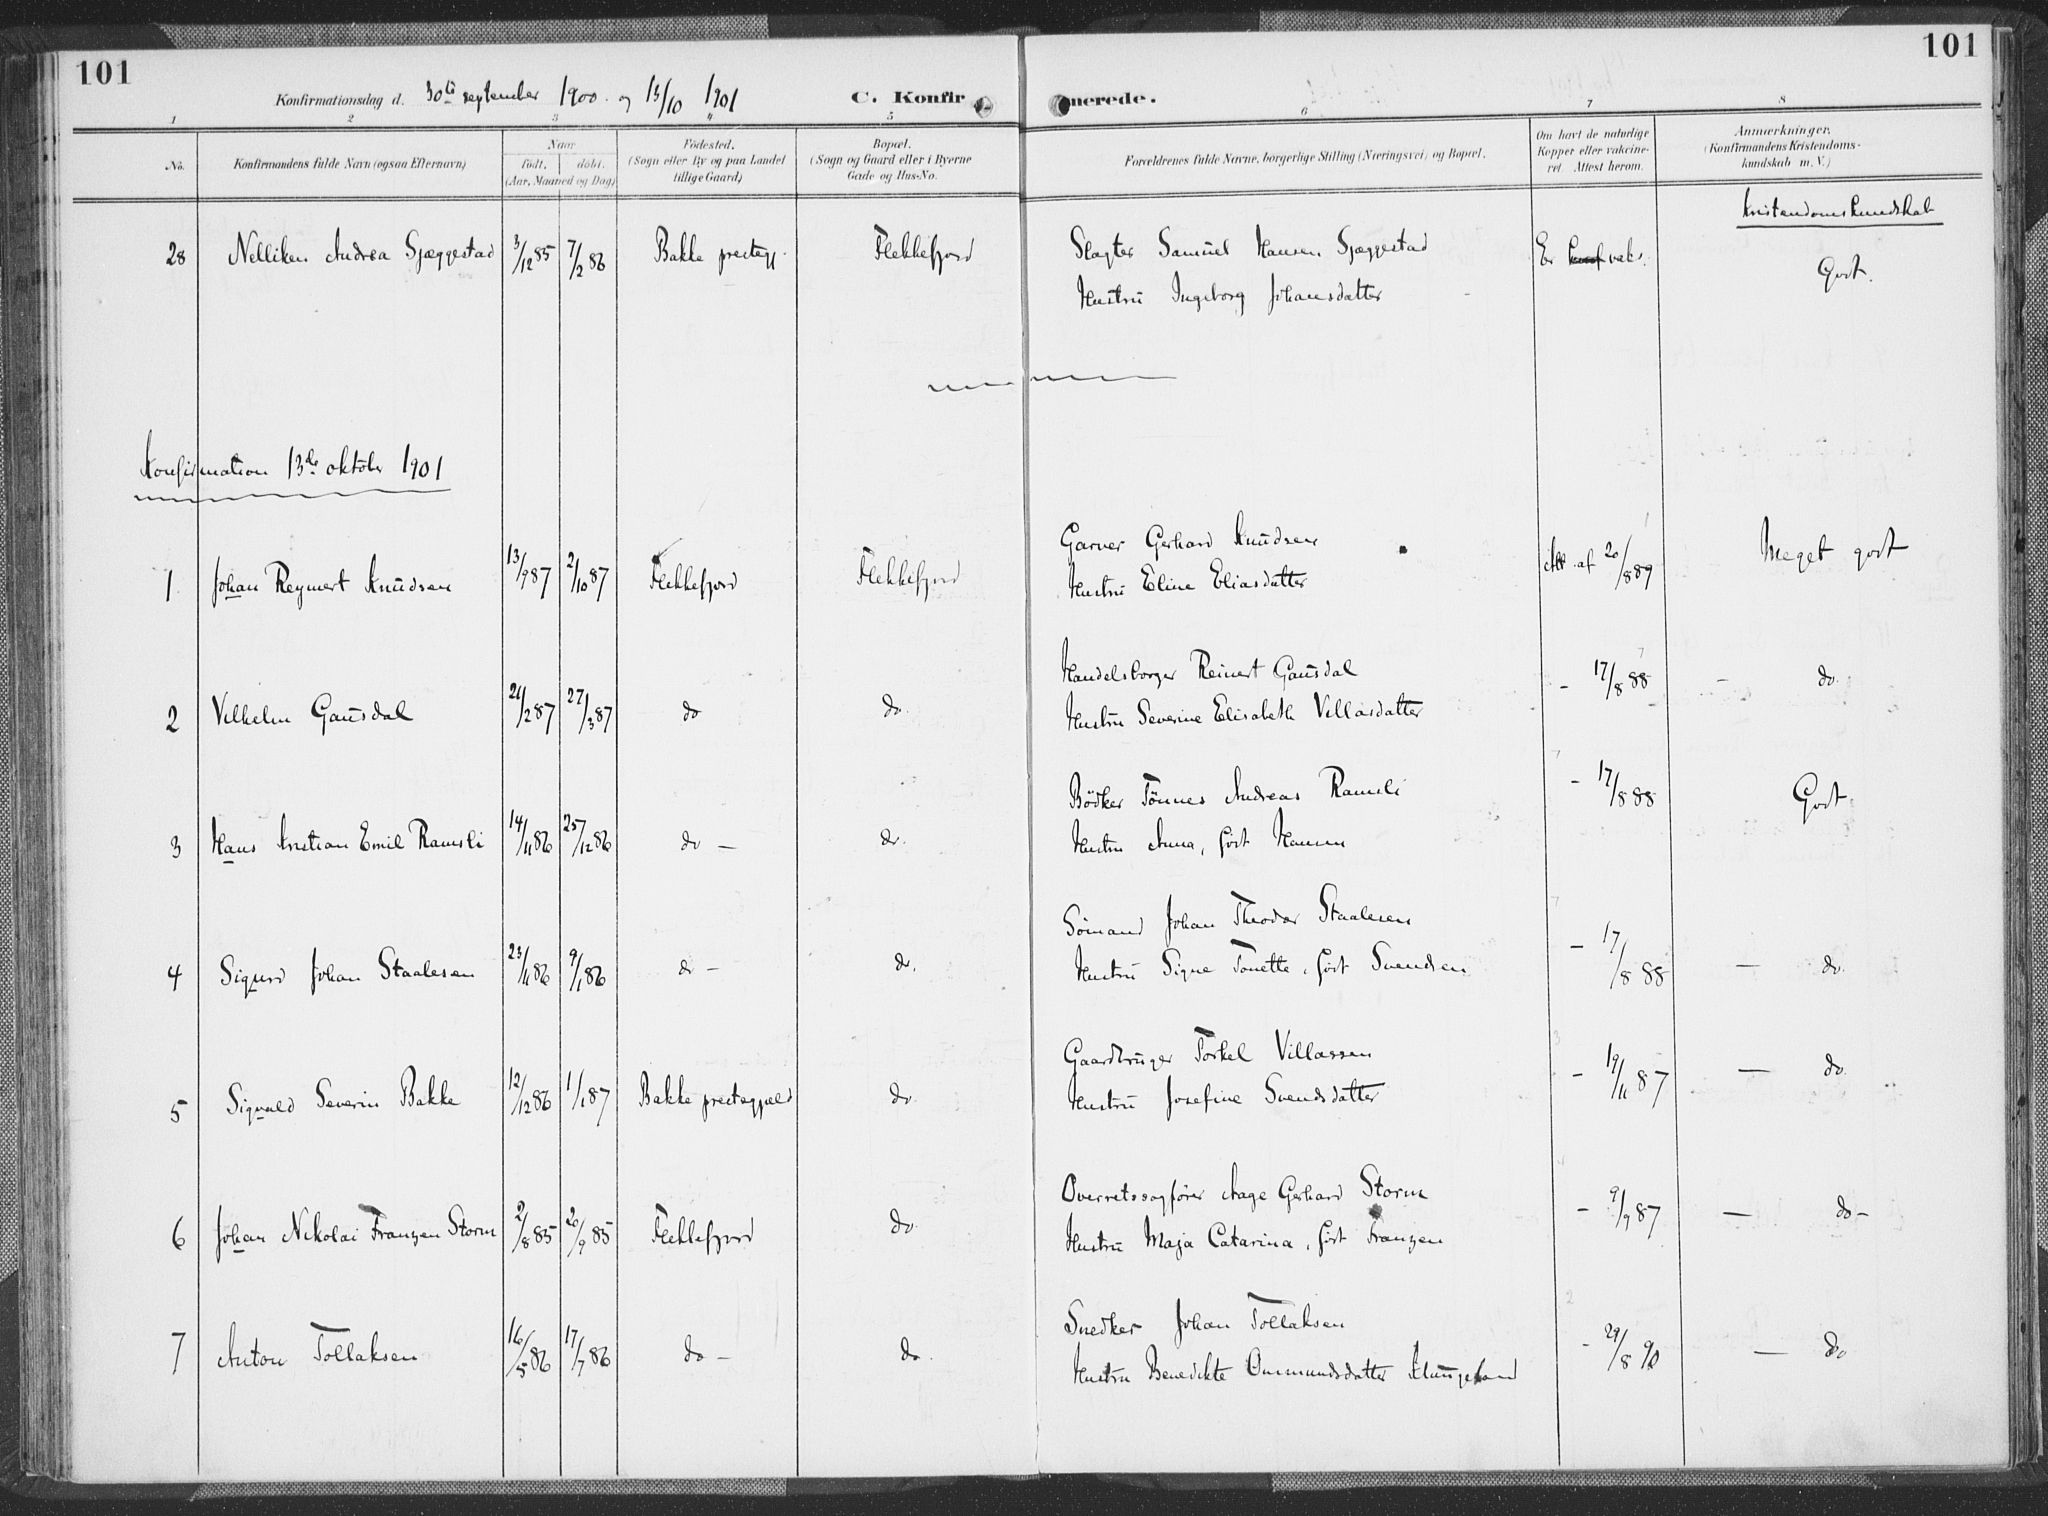 101
101
Konfirmationsdag d. 30te september 1900. og 13/10 1901
C. Konfirmerede.
1 2 3 4 5 6 7 8
No.
Konfirmandens fulde Navn (ogsaa Efternavn)
Naar
født. døbt.
(Aar, Maaned og Dag)
Fødested.
(Sogn eller By og paa Landet
tillige Gaard)
Bopæl.
(Sogn og Gaard eller i Byerne
Gade og Hus-No.
Forældrenes fulde Navne, borgerlige Stilling (Næringsvei) og Bopæl.
Om havt de naturlige
Kopper eller vakcine-
ret. Attest herom.
Anmærkninger.
(Konfirmandens Kristendoms-
kundskab m. V.)
Kristendomskundskab
28 Nelliken Andrea Sjæggestad 3/12 85 7/2 86 Bakke prestegj. Flekkefjord Slagter Samuel Hansen Sjæggestad Er vaks. Godt.
Hustru Ingeborg Johansdatter
Konfirmation 13de oktober 1901
Garver Gerhard Knudsen
1 Johan Reymert Knudsen 13/9 87 2/10 87 Flekkefjord Flekkefjord Hustru Eline Eliasdatter Att. af 20/8 89 Meget godt
Handelsborger Reinert Gausdal
2 Vilhelm Gausdal 21/2 87 27/3 87 do do. Hustru Severine Elisabeth Villasdatter - 17/8 88 - do.
Bödker Tönnes Andreas Ramsli
3 Hans Kristian Emil Ramsli 14/11 86 25/12 86 do - do. Hustru Anna, født Hansen - 17/8 88 Godt
Sömand Johan Theodor Staalesen
4 Sigurd Johan Staalesen 23/11 86 9/1 86 do - do. Hustru Signe Tonette, født Svendsen - 17/8 88 - do.
Gaardbruger Torkel Villassen
5 Sigvald Severin Bakke 12/12 86 1/1 87 Bakke prestegjæld do Hustru Josefine Svendsdatter - 19/11 87 - do.
Overretssagfører Aage Gerhard Storm
6 Johan Nikolai Franzen Storm 2/8 85 20/9 85 Flekkefjord do. Hustru Maja Catarina, født Franzen - 9/9 87 - do -
Snedker Johan Tollaksen
7 Anton Tollaksen 16/5 86 17/7 86 do - do. Hustru Benedikte Ommundsdatter - 29/8 90 - do